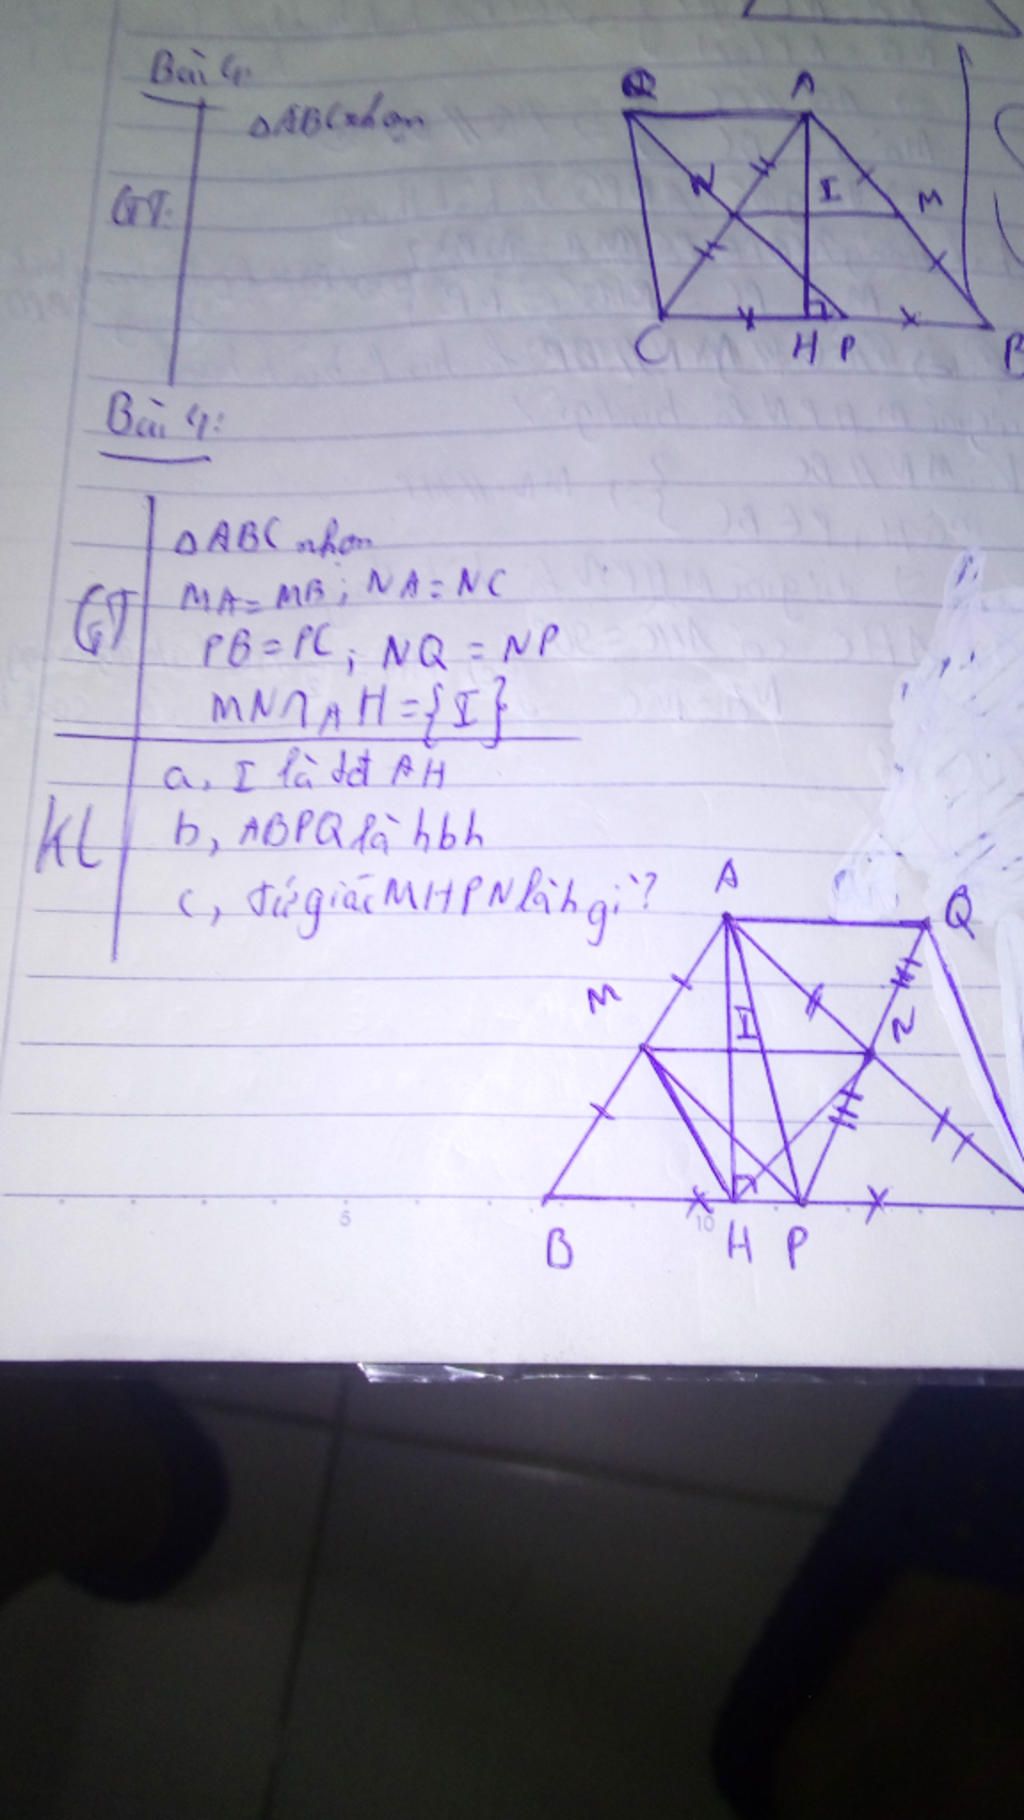 Bài 4:
ΔABC nhọn
GT:
Q A
N I M
C H P B
Bài 4:
GT
ΔABC nhọn
MA = MB; NA = NC
PB = PC; NQ = NP
MN ∩ AH = {I}
KL
a, I là tđ AH
b, ABPQ là hbh
c, tứ giác MHPN là h gì?
A Q
M I N
B H P
5 10